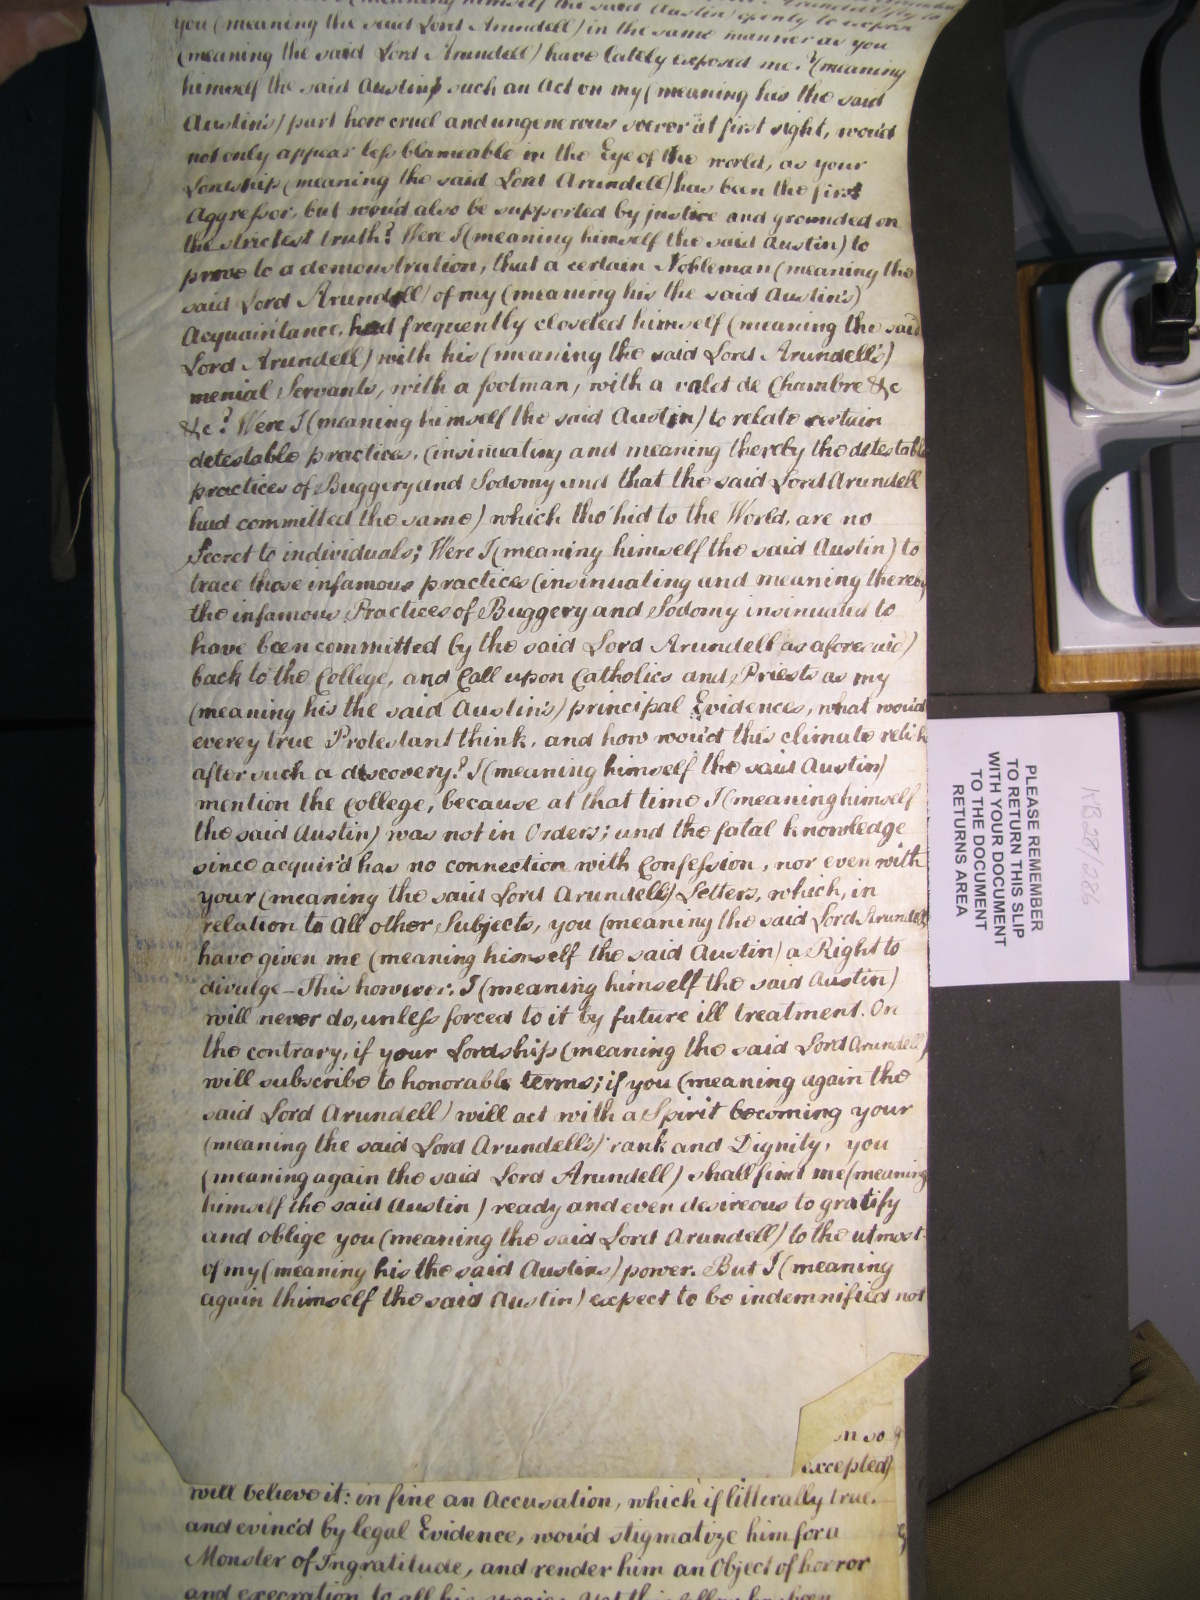 (meaning himself the said Austin) openly to expose
you (meaning the said Lord Arundell) in the same manner as you
(meaning the said Lord Arundell) have lately exposed me? (meaning
himself the said Austin) such an Act on my (meaning his the said
Austin's) part how cruel and ungenerous soever at first sight, wou'd
not only appear less blameable in the Eye of the world, as your
Lordship (meaning the said Lord Arundell) has been the first
Aggressor, but wou'd also be supported by justice and grounded on
the strictest truth? Were I (meaning himself the said Austin) to
prove to a demonstration, that a certain Nobleman (meaning the
said Lord Arundell) of my (meaning his the said Austin's)
Acquaintance, had frequently closeted himself (meaning the said
Lord Arundell) with his (meaning the said Lord Arundell's)
menial Servants, with a footman, with a valet de Chambre &c
&c? Were I (meaning himself the said Austin) to relate certain
detestable practices, (insinuating and meaning thereby the detestable
practices of Buggery and Sodomy and that the said Lord Arundell
had committed the same) which tho' hid to the World, are no
Secret to individuals; Were I (meaning himself the said Austin) to
trace those infamous practices (insinuating and meaning thereby
the infamous Practices of Buggery and Sodomy insinuated to
have been committed by the said Lord Arundell as aforesaid)
back to the College, and Call upon Catholics and Priests as my
(meaning his the said Austin's) principal Evidences, what would
everey true Protestant think, and how wou'd this climate relish
after such a discovery? I (meaning himself the said Austin)
mention the College, because at that time I (meaning himself
the said Austin) was not in Orders; and the fatal knowledge
since acquir'd has no connection with Confession, nor even with
your (meaning the said Lord Arundell's) Letters, which, in
relation to All other Subjects, you (meaning the said Lord Arundell)
have given me (meaning himself the said Austin) a Right to
divulge - This however, I (meaning himself the said Austin)
will never do, unless forced to it by future ill treatment. On
the contrary, if your Lordship (meaning the said Lord Arundell)
will subscribe to honorable terms; if you (meaning again the
said Lord Arundell) will act with a Spirit becoming your
(meaning the said Lord Arundell's) rank and Dignity, you
(meaning again the said Lord Arundell) shall find me (meaning
himself the said Austin) ready and even desireous to gratify
and oblige you (meaning the said Lord Arundell) to the utmost
of my (meaning his the said Austins) power. But I (meaning
again himself the said Austin) expect to be indemnified not
excepted)
will believe it: in fine an Accusation, which if litterally true.
and evinc'd by legal Evidence, wou'd stigmatize him for a
Monster of Ingratitude, and render him an Object of horror
and execration to all his species. Yet this
PLEASE REMEMBER
TO RETURN THIS SLIP
WITH YOUR DOCUMENT
TO THE DOCUMENT
RETURNS AREA
KB 28/286